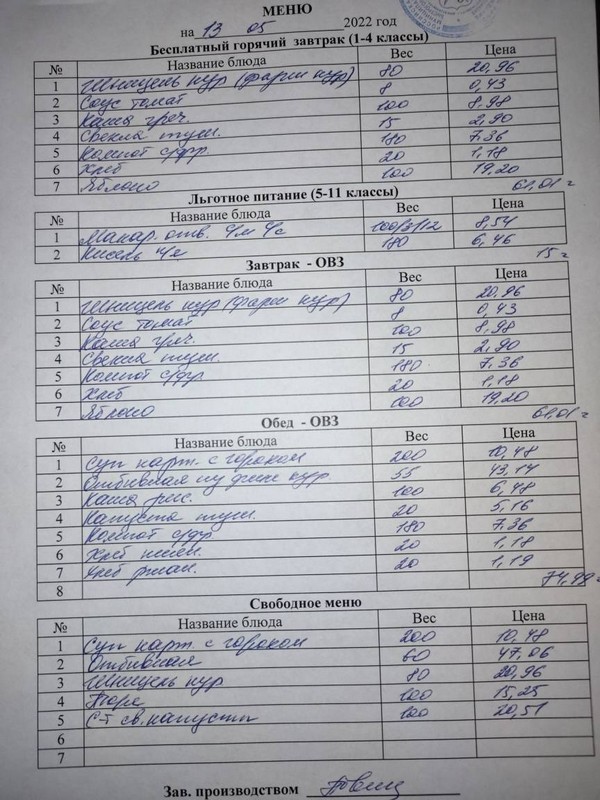 МЕНЮ
на 13 05 2022 год
Бесплатный горячий завтрак (1-4 классы)
№ Название блюда Вес Цена
1 Шницель кур (фарш кур) 80 20,96
2 Соус томат 8 0,43
3 Каша греч. 100 8,98
4 Свекла туш. 15 2,90
5 Компот с/фр. 180 7,36
6 Хлеб 20 1,18
7 Яблоко 100 19,20
61,01 г
Льготное питание (5-11 классы)
№ Название блюда Вес Цена
1 Макар. отв. ч/м ч/с 8,54
2 Кисель 180 6,46
15 г
Завтрак - ОВЗ
№ Название блюда Вес Цена
1 Шницель кур (фарш кур) 80 20,96
2 Соус томат 8 0,43
3 Каша греч. 100 8,98
4 Свекла туш. 15 2,90
5 Компот с/фр 180 7,36
6 Хлеб 20 1,18
7 Яблоко 100 19,20
61,01 г
Обед - ОВЗ
№ Название блюда Вес Цена
1 Суп карт. с горохом 200 10,48
2 Отбивная из филе кур. 55 43,14
3 Каша рис. 100 6,48
4 Капуста туш. 20 5,16
5 Компот с/фр 180 7,36
6 Хлеб пшен. 20 1,18
7 Хлеб ржан. 20 1,19
8 74,99 г
Свободное меню
№ Название блюда Вес Цена
1 Суп карт. с горохом 200 10,48
2 Отбивная 60 47,06
3 Шницель кур 80 20,96
4 Пюре 100 15,25
5 С-т св. капусты 100 20,51
6
7
Зав. производством